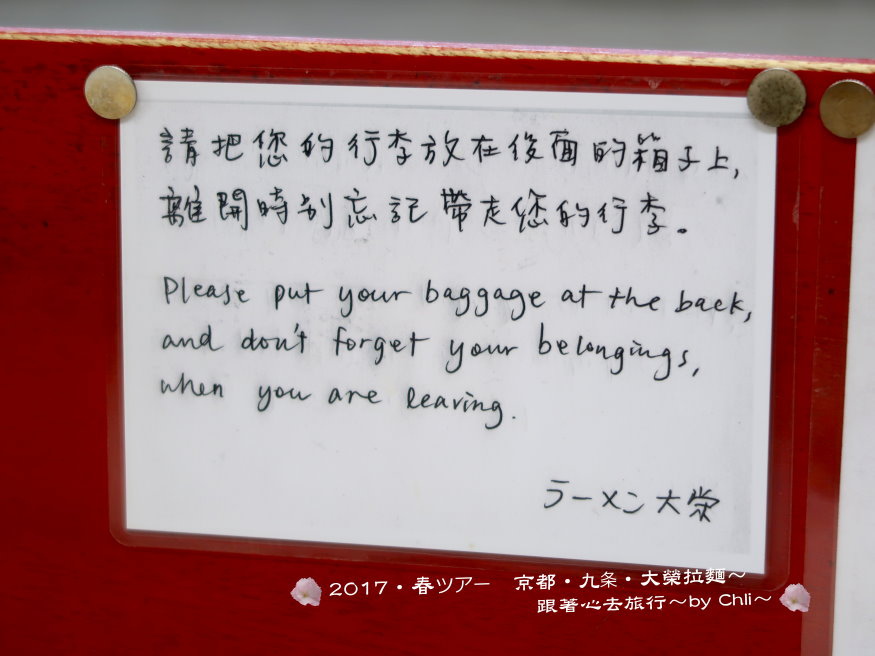 請把您的行李放在後面的箱子上,
離開時別忘記帶走您的行李。
Please put your baggage at the back,
and don't forget your belongings,
when you are leaving.
ラーメン大栄
2017・春ツアー 京都・九条・大榮拉麵~
跟著心去旅行~by Chli~